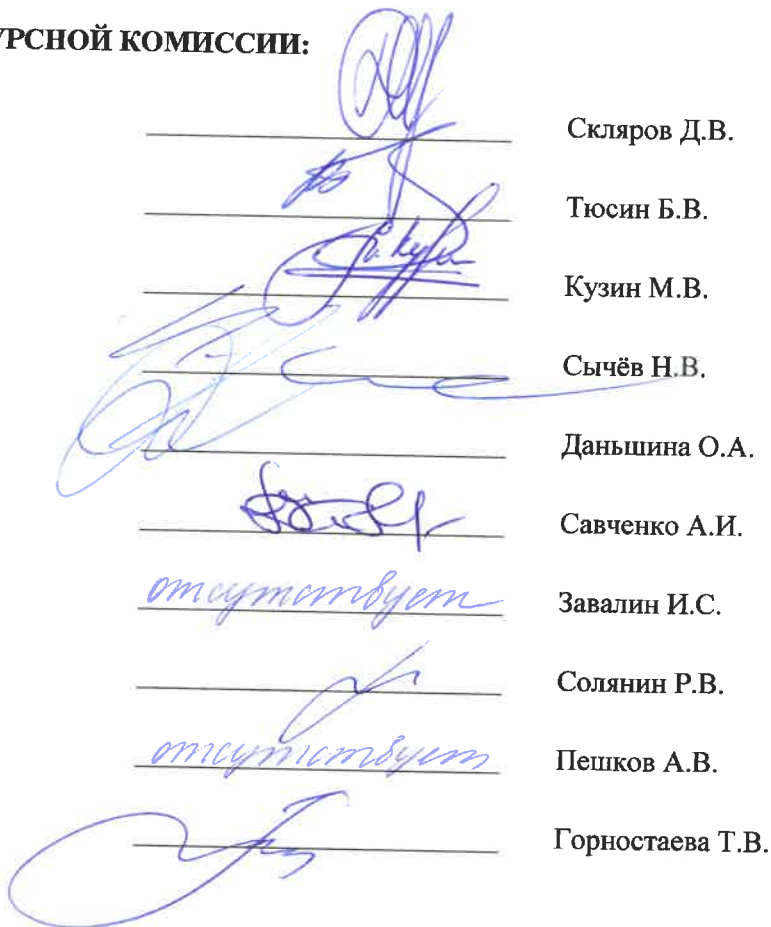 УРСНОЙ КОМИССИИ:
Скляров Д.В.
Тюсин Б.В.
Кузин М.В.
Сычёв Н.В.
Даньшина О.А.
Савченко А.И.
отсутствует Завалин И.С.
Солянин Р.В.
отсутствует Пешков А.В.
Горностаева Т.В.